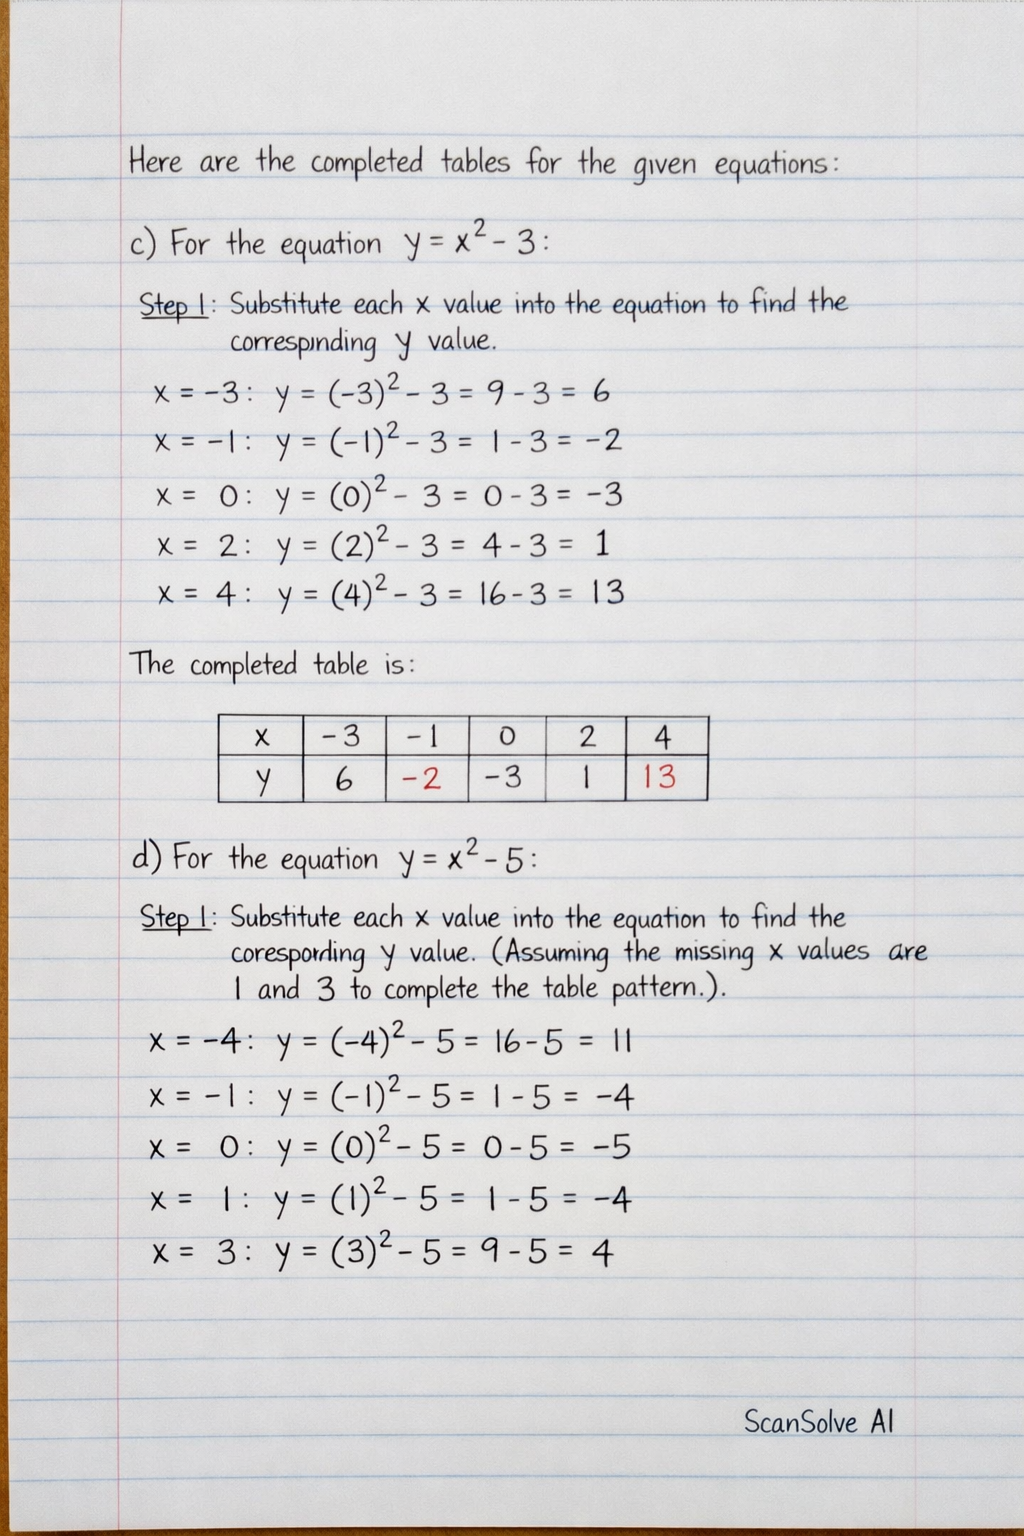 Here are the completed tables for the given equations:
c) For the equation y = x² - 3:
Step 1: Substitute each x value into the equation to find the
correspınding y value.
x = -3: y = (-3)² - 3 = 9 - 3 = 6
x = -1: y = (-1)² - 3 = 1 - 3 = -2
x = 0: y = (0)² - 3 = 0 - 3 = -3
x = 2: y = (2)² - 3 = 4 - 3 = 1
x = 4: y = (4)² - 3 = 16 - 3 = 13
The completed table is:
x -3 -1 0 2 4
y 6 -2 -3 1 13
d) For the equation y = x² - 5:
Step 1: Substitute each x value into the equation to find the
corespording y value. (Assuming the missing x values are
1 and 3 to complete the table pattern.).
x = -4: y = (-4)² - 5 = 16 - 5 = 11
x = -1: y = (-1)² - 5 = 1 - 5 = -4
x = 0: y = (0)² - 5 = 0 - 5 = -5
x = 1: y = (1)² - 5 = 1 - 5 = -4
x = 3: y = (3)² - 5 = 9 - 5 = 4
ScanSolve AI